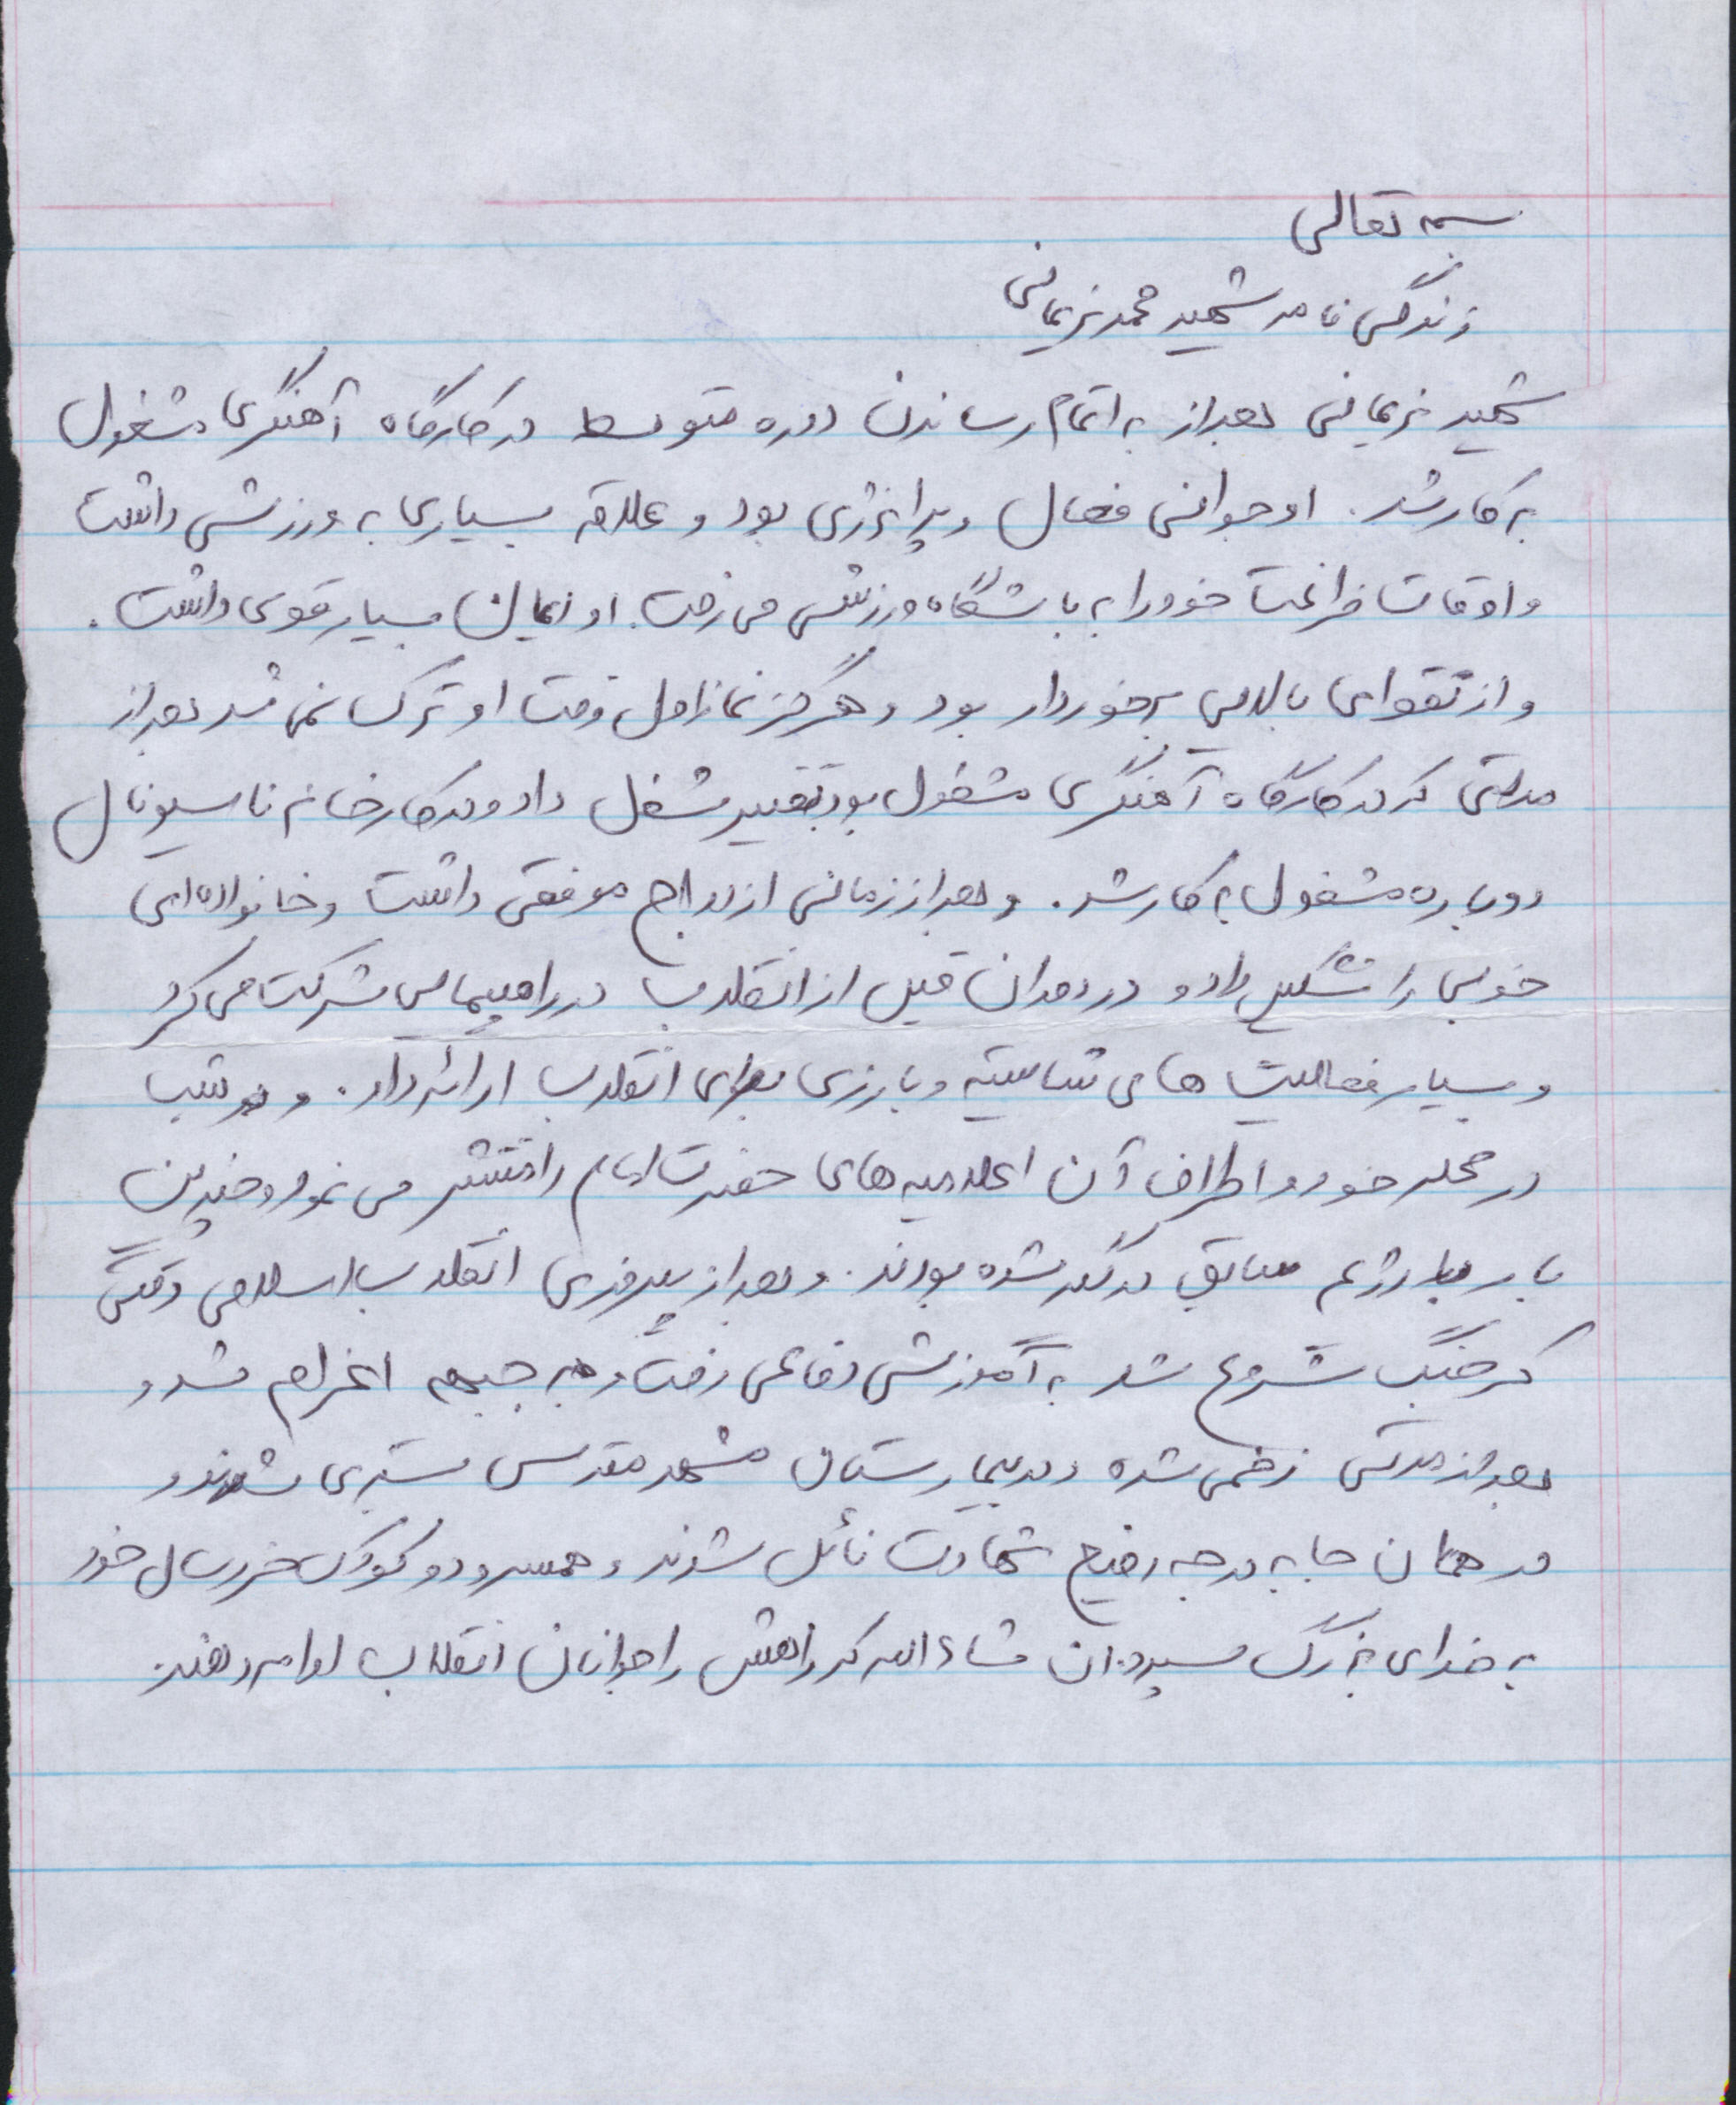 بسمه تعالی
زندگی نامه شهید محمد نریمانی
شهید نریمانی بعد از به اتمام رساندن دوره متوسط در کارگاه آهنگری مشغول
به کار شد. او جوانی فعال و پر انرژی بود و علاقه بسیاری به ورزش داشت
و اوقات فراغت خود را به باشگاه ورزشی می رفت. او ایمان بسیار قوی داشت.
و از تقوای بالایی برخوردار بود و هرگز نماز اول وقت او ترک نمی شد بعد از
مدتی که در کارگاه آهنگری مشغول بود تغییر شغل داد و در کارخانه ناسیونال
دوباره مشغول به کار شد. و بعد از زمانی ازدواج موفقی داشت و خانواده ای
خوبی را تشکیل داد و در دوران قبل از انقلاب در راهپیمایی شرکت می کرد
و بسیار فعالیت های شایسته و بارزی برای انقلاب ارائه داد. و هر شب
در محله خود و اطراف آن اعلامیه های حضرت امام را منتشر می نمود و چندین
بار با رژیم سابق درگیر شده بودند. و بعد از پیروزی انقلاب اسلامی وقتی
که جنگ شروع شد به آموزش دفاعی رفت و به جبهه اعزام شد و
بعد از مدتی زخمی شده و در بیمارستان مشهد مقدس بستری شدند و
در همان جا به درجه رفیع شهادت نائل شدند و همسر و دو کودک خردسال خود
به خدای بزرگ سپرد. ان شاء الله که راهش را جوانان انقلاب ادامه دهند.